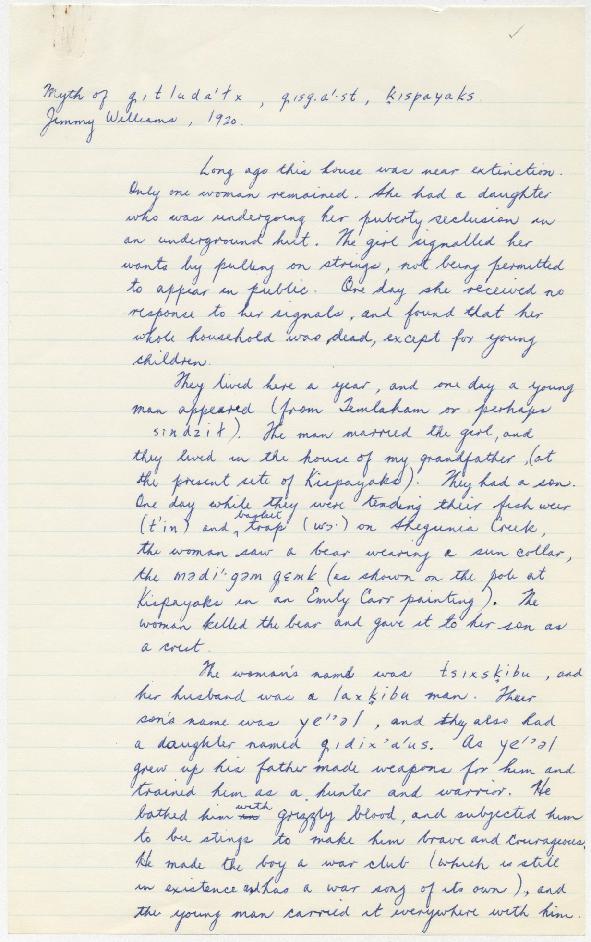 Myth of gitludá'tx, gisg.a'·st, ḳispayaks.
Jimmy Williams, 1920.
Long ago this house was near extinction.
Only one woman remained. She had a daughter
who was undergoing her puberty seclusion in
an underground hut. The girl signalled her
wants by pulling on strings, not being permitted
to appear in public. One day she received no
response to her signals, and found that her
whole household was dead, except for young
children.
They lived here a year, and one day a young
man appeared (from Temlaham or perhaps
sindziɫ). The man married the girl, and
they lived in the house of my grandfather (at
the present site of Kispayaks). They had a son.
One day while they were tending their fish weir
(t'in) and basket trap (wɔ·) on Shegunia Creek,
the woman saw a bear wearing a sun collar,
the mədi'·gəm gɛmk (as shown on the pole at
Kispayaks in an Emily Carr painting). The
woman killed the bear and gave it to her son as
a crest.
The woman's name was tsixsḳibu, and
her husband was a laxḳibu man. Their
son's name was ye'ʼəl, and they also had
a daughter named g.idix'a'us. As ye'ʼəl
grew up his father made weapons for him and
trained him as a hunter and warrior. He
bathed him with grizzly blood, and subjected him
to bee stings to make him brave and courageous.
He made the boy a war club (which is still
in existence and has a war song of its own), and
the young man carried it everywhere with him.